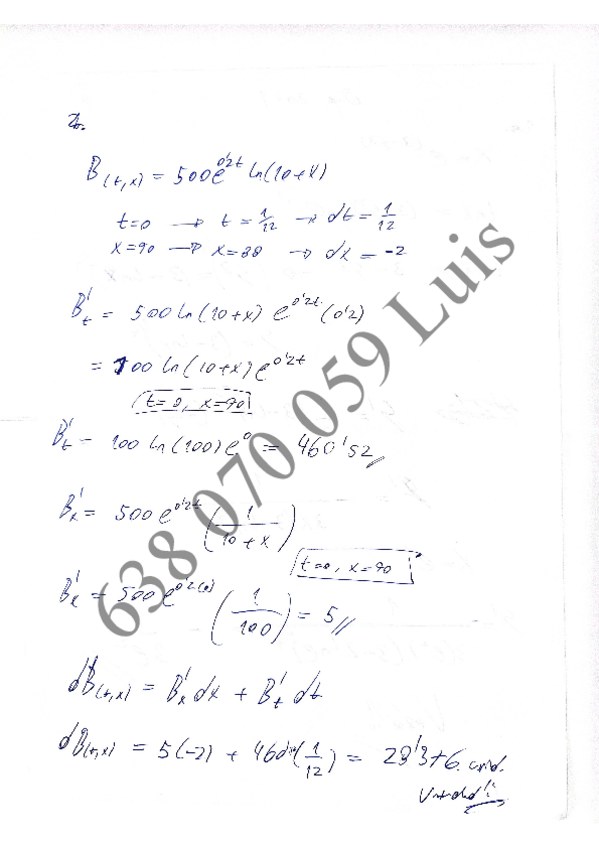 2.
B(t,x) = 500e^0'2t ln(10+x)
t=0 → t = 1/12 → dt = 1/12
x=90 → x=88 → dx = -2
B't = 500 ln(10+x) e^0'2t (0'2)
= 100 ln(10+x) e^0'2t
(t=0, x=90)
B't = 100 ln(100) e^0 = 460'52
B'x = 500 e^0'2t (1/(10+x))
t=0, x=90
B'x = 500 e^0'2(0) (1/100) = 5
dB(t,x) = B'x dx + B't dt
dB(t,x) = 5(-2) + 460'52 (1/12) = 28'376 unid.
638 070 059 Luis